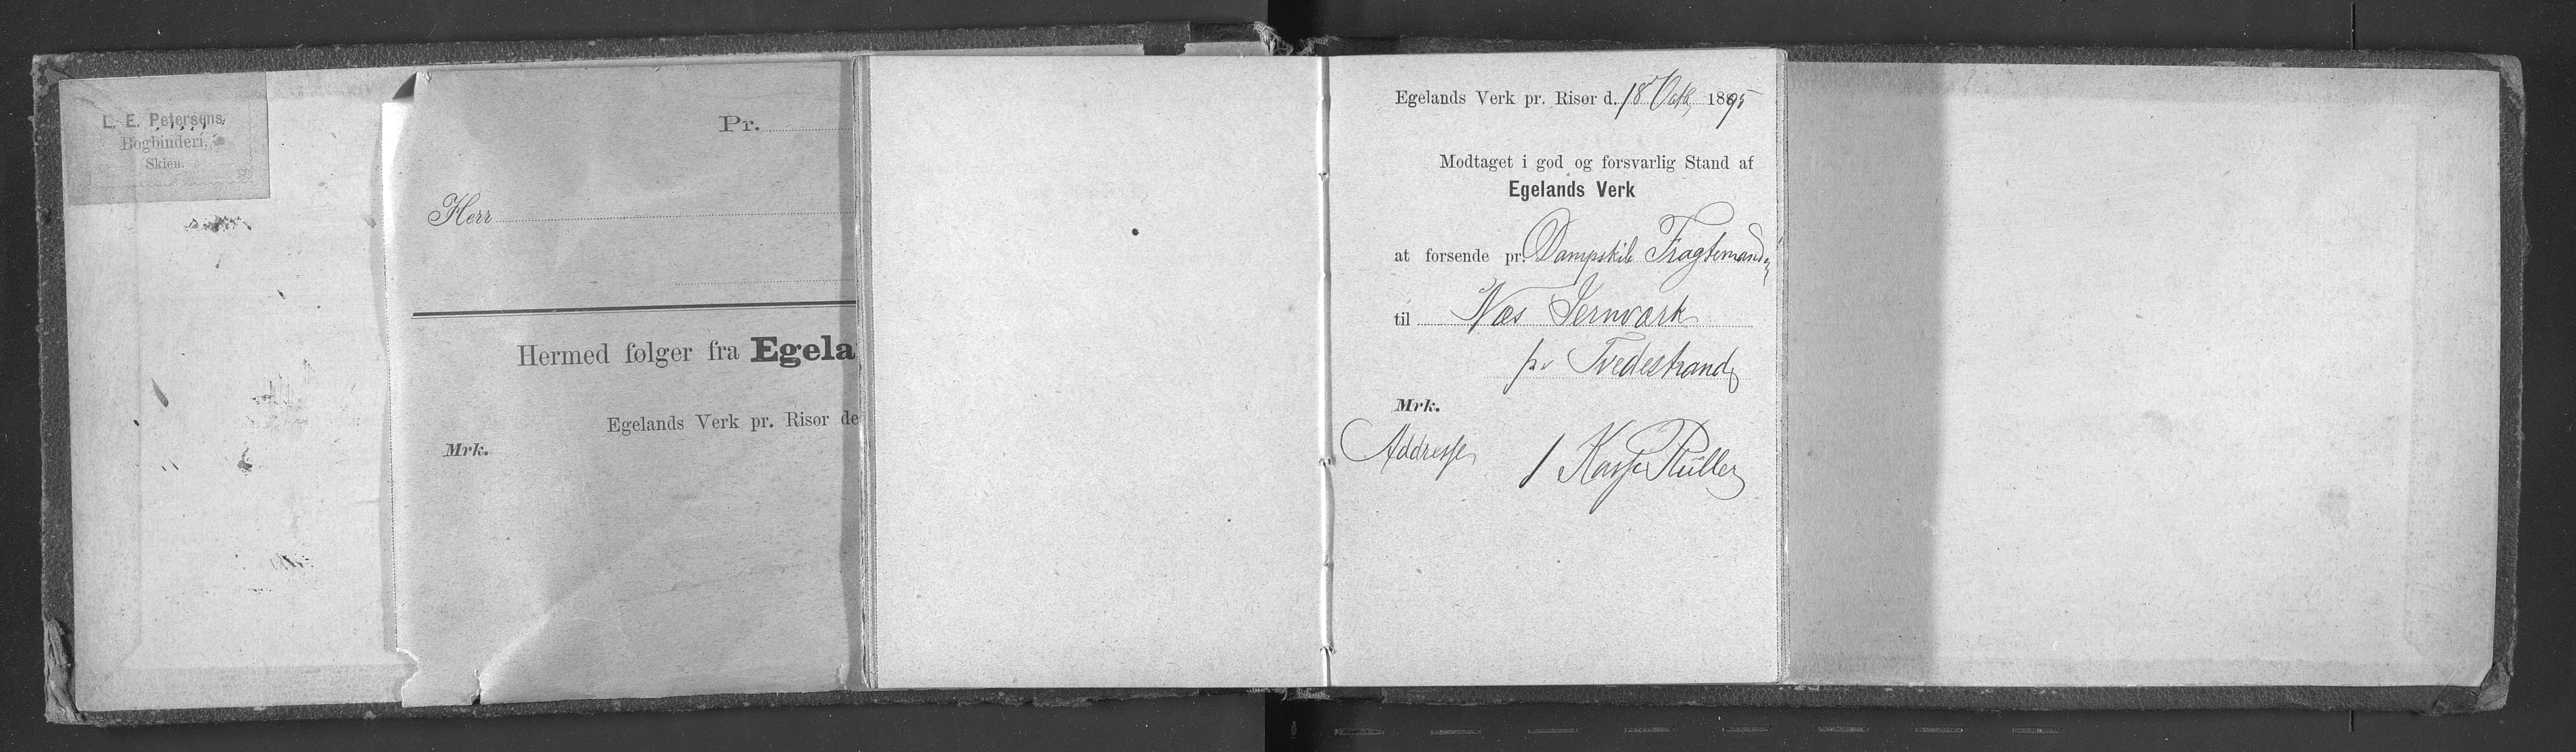 L. E. Petersens
Bogbinderi,
Skien.
Pr.
Herr
Hermed følger fra Egela
Egelands Verk pr. Risør de
Mrk.
Egelands Verk pr. Risør d. 18 Octb 1895
Modtaget i god og forsvarlig Stand af
Egelands Verk
at forsende pr. Dampskib Fragtemand
til Næs Jernværk
pr Tvedestrand
Mrk.
Addresse 1 Kasse Rüller